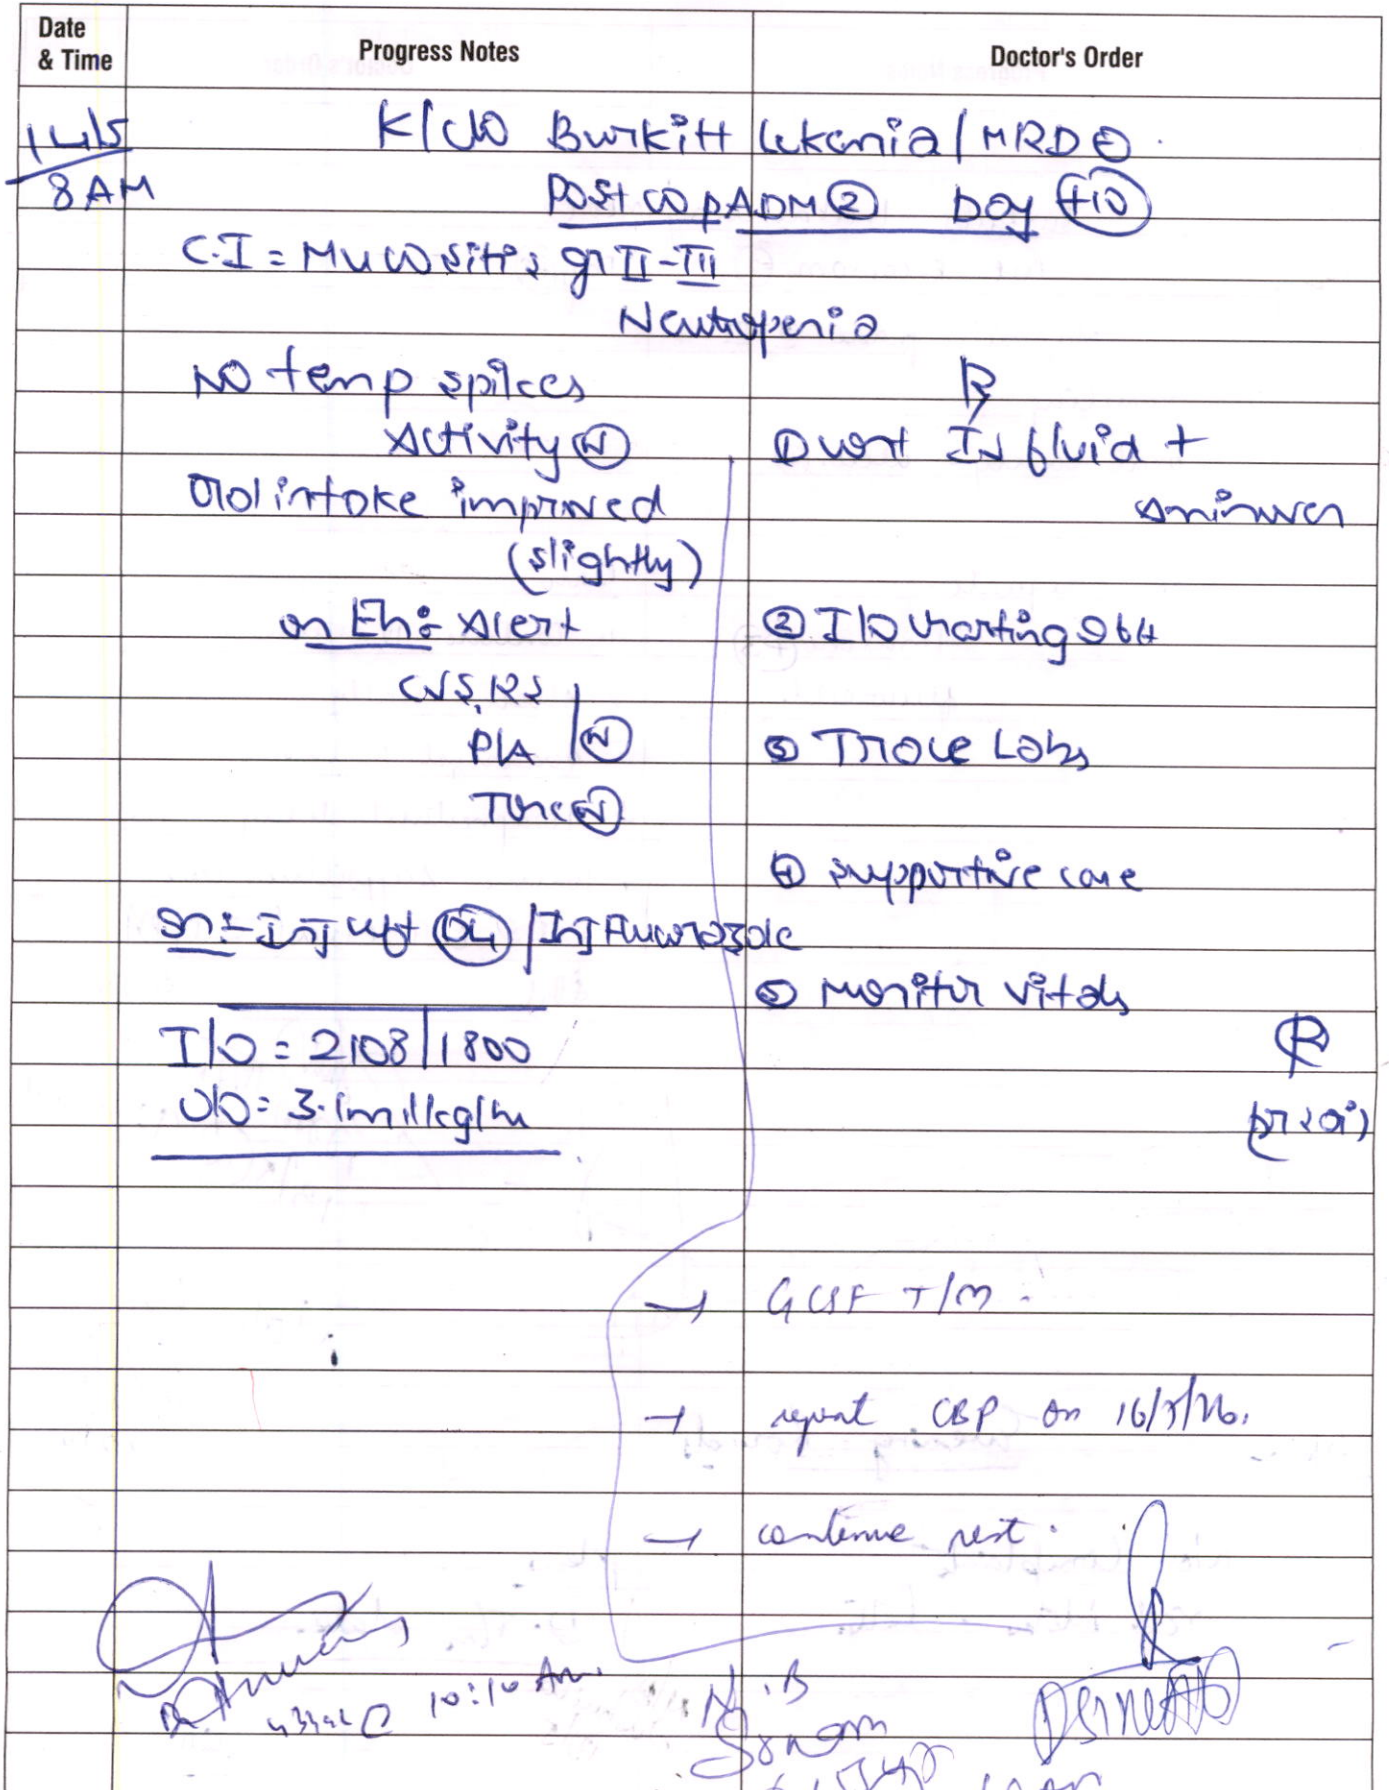 Date & Time
Progress Notes
Doctor's Order
14/5
8 AM
K/c/o Burkitt lukemia / MRD ⊖
Post COPADM ② Day +10
C.I = Mucositis gr II-III
Neutropenia
NO temp spikes
Activity Ⓝ
Oral intake improved
(slightly)
on E/h: Alert
CVS, RS
P/A Ⓝ
Tone Ⓝ
on:- Inj D4 / Inj Fluconazole
I/O = 2108/1800
U/O = 3.1 ml/kg/hr
R
① IV fluid +
② I/O charting Q6H
③ Trace Labs
④ supportive care
⑤ Monitor vitals
→ GCSF T/M.
→ repeat CBP on 16/5/26.
→ continue rest.
10:10 Am
N.B
Sonam